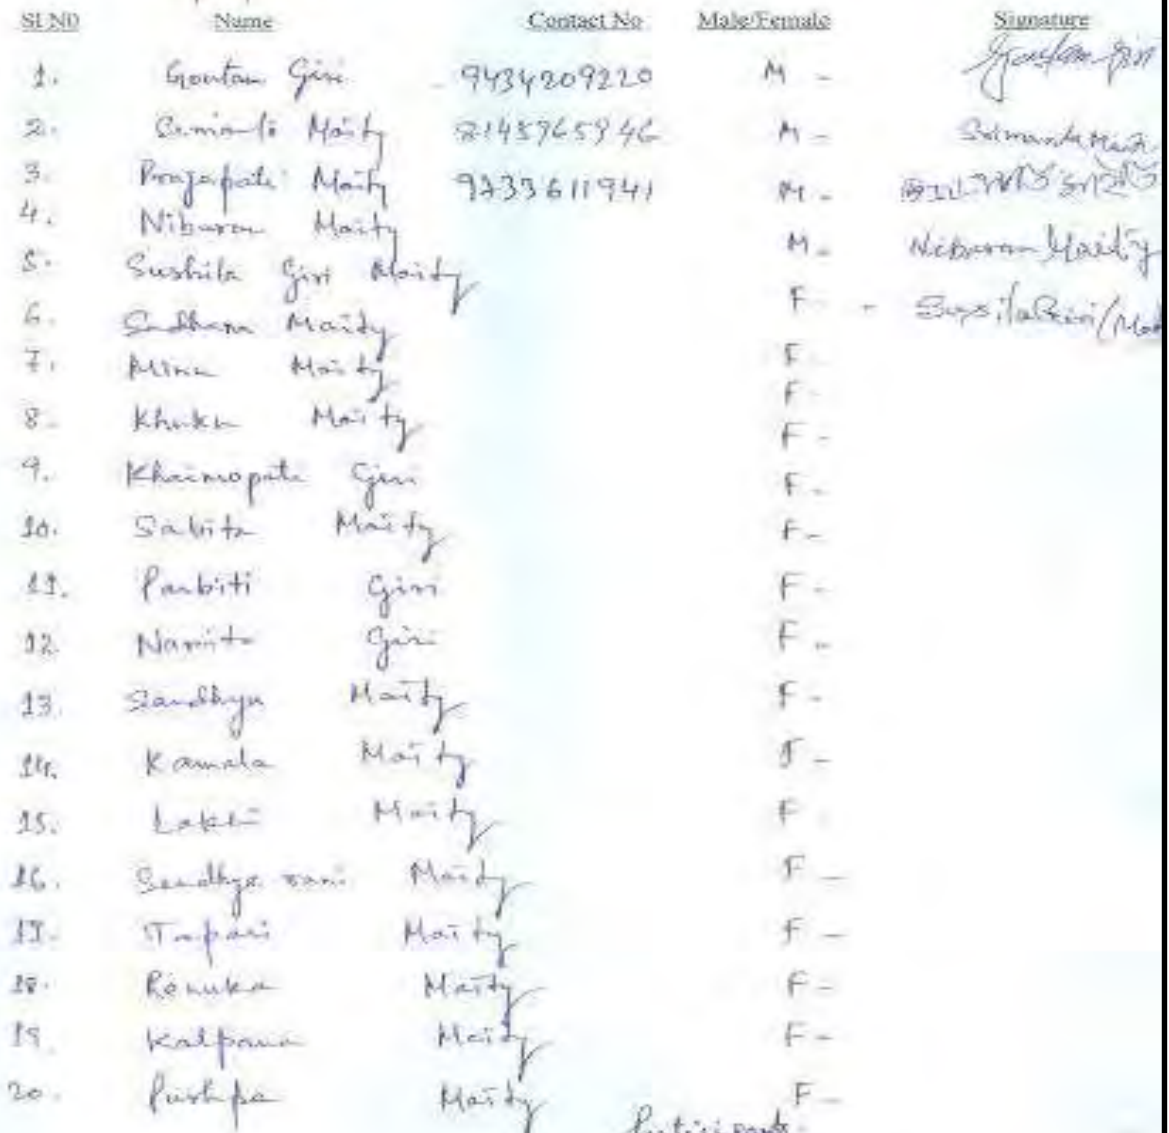 Sl N0 Name Contact No Male/Female Signature
1. Goutam Giri - 9434209220 M - Goutam Giri
2. Maity M - Srimanta Maiti
3. Prajapati Maity 9733611941 M -
4. Nibaran Maity M - Nibaran Maity
5. Sushila Giri Maity F - - Susila Giri/(Mai
6. Sadhana Maity F -
7. Mina Maity F -
8. Khuku Maity F -
9. Giri F -
10. Sabita Maity F -
11. Parbiti Giri F -
12. Namita Giri F -
13. Sandhya Maity F -
14. Kamala Maity F -
15. Lakhi Maity F -
16. Sandhya rani Maity F -
17. Tapasi Maity F -
18. Renuka Maity F -
19. Kalpana Maity F -
20. Pushpa Maity F -
Participants.